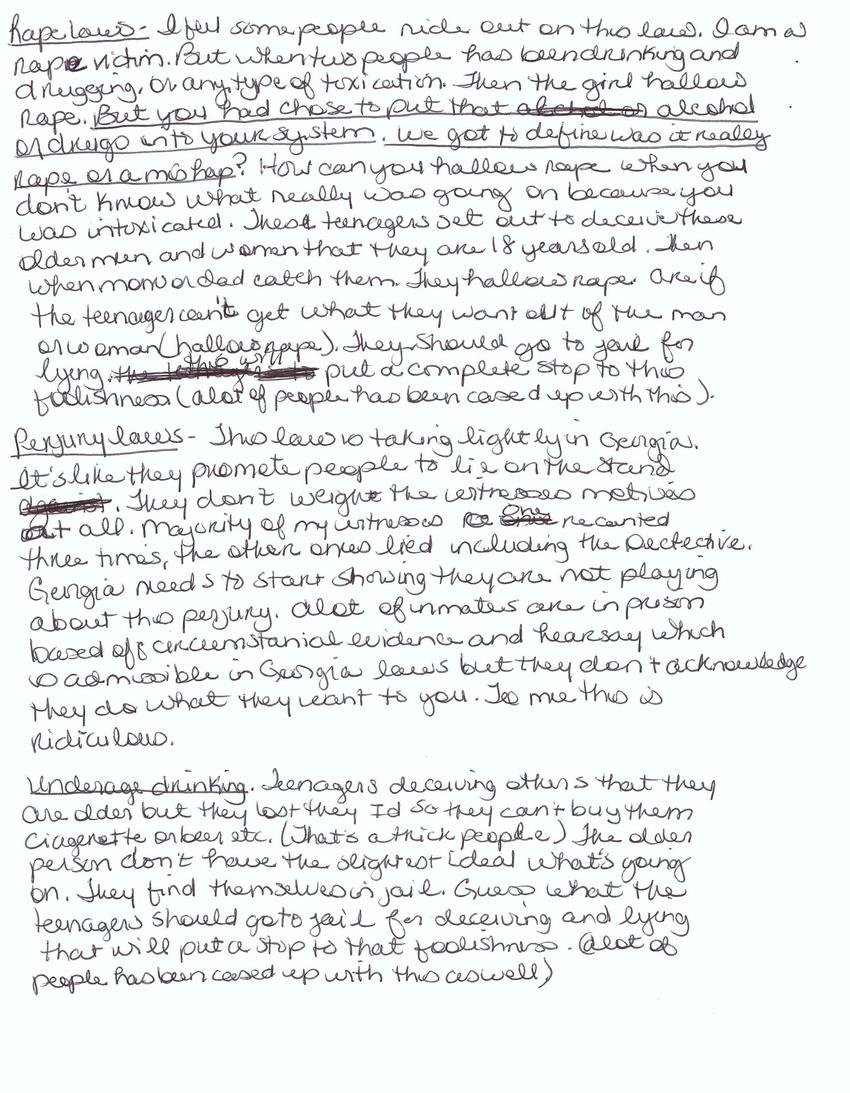 Rape laws - I feel some people ride out on this law. I am a
rape victim. But when two people has been drinking and
drugging, or any type of toxication. Then the girl hallow
rape. But you had chose to put that alcohol or alcohol
or drugs into your system. We got to define was it really
rape or a mishap? How can you hallow rape when you
don't know what really was going on because you
was intoxicated. These teenagers set out to deceive these
older men and women that they are 18 years old. Then
when mom or dad catch them. They hallow rape. Are if
the teenager can't get what they want out of the man
or woman (hallow rape). They should go to jail for
lying. this will put a complete stop to this
foolishness (alot of people has been cased up with this).
Perjury laws - This law is taking lightly in Georgia.
It's like they promote people to lie on the stand
. They don't weight the witnesses motives
at all. Majority of my witnesses One recanted
three times, the other ones lied including the Dectective.
Georgia needs to start showing they are not playing
about this perjury. Alot of inmates are in prison
based off circumstanial evidence and hearsay which
is admissible in Georgia laws but they don't acknowledge
they do what they want to you. To me this is
ridiculous.
Underage drinking. Teenagers deceiving others that they
are older but they lost they Id so they can't buy them
Ciagerette or beer etc. (That's a thick people) The older
person don't have the slightest ideal what's going
on. They find themselves in jail. Guess what the
teenagers should go to jail for deceiving and lying
that will put a stop to that foolishness. (Alot of
people has been cased up with this as well)